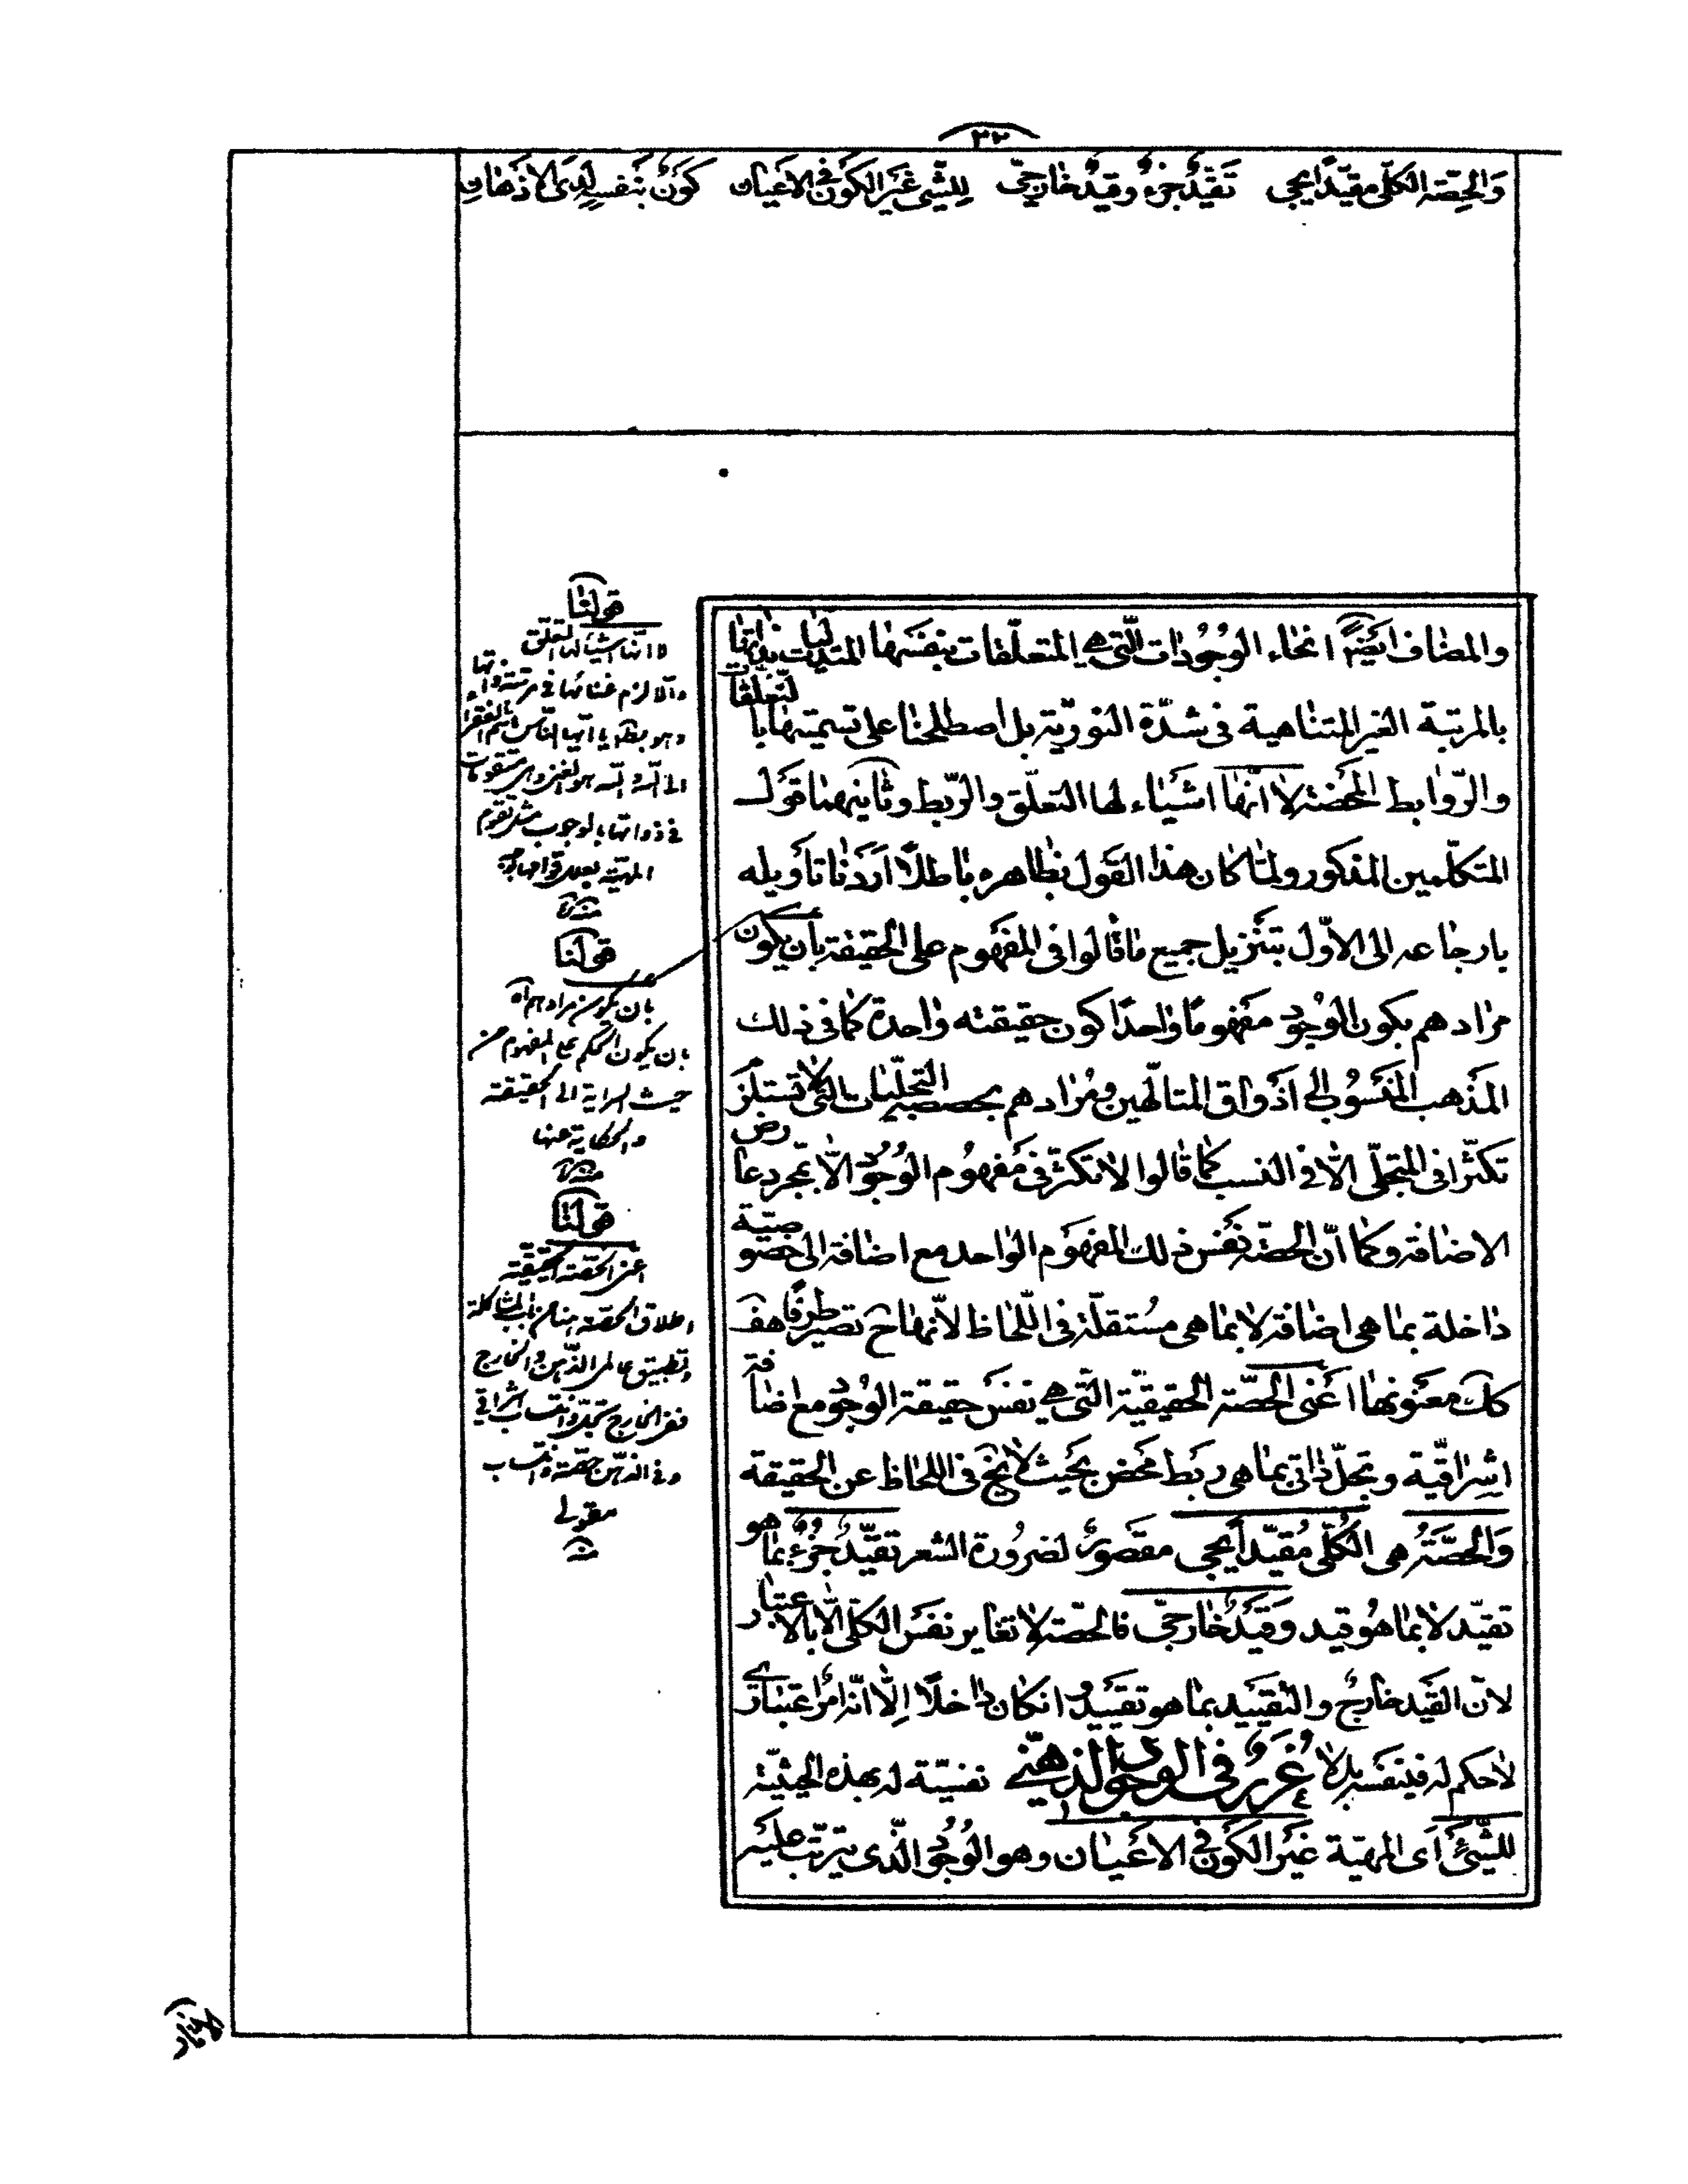 ٣٢
وَالحِصّة الكلّى مقيّداً يجى تَقَيّدٌ جزءٌ وقيدٌ خارجىّ للشّىء غَيرَ الكَون فى الاَعيان كَونٌ بنَفسِه لدى الاذهان
والمضاف اَيضاً انحاء الوُجُودات الّتى هى المتعلّقات بنفسها المتدليات بذاتها
بالمرتبة الغير المتناهية فى شدّة النوريّة بل اصطلحنا على تسميتها بالتعلّقات
والرّوابط المحضة لا انّها اشياء لها التعلّق والرّبط وثانيهما قول
المتكلّمين المذكور ولمّا كان هذا القَول بظاهره باطلاً اَرَدنا تأويله
بارجاعه الى الاوّل بتنزيل جميع ما قالوا فى المفهوم على الحقيقة بأن يكون
مرادهم بكون الوجود مفهوماً واحداً كون حقيقته واحدة كما فى ذلك
المذهب المنسُوب الى اَذواق المتالّهين ومُرادهم بحصصه التجلّيات الّتى لا تستلزم
تكثّراً فى المتجلّى الاّ فى النسب كما قالوا لا تكثّر فى مفهوم الوُجود الاّ بمجرد عارض
الاضافة وكما انّ الحصّة نفس ذلك المفهوم الواحد مع اضافة الى خصوصيّة
داخلة بما هى اضافة لا بما هى مُستقلّة فى اللّحاظ لانّها ح تصير طرفاً هف
كك معنونها اَعنى الحصّة الحقيقيّة الّتى هى نفس حقيقة الوُجود مع اضافة
اشراقيّة وتجلّ ذاتى بما هى ربط محض بحيث لا يخ فى اللحاظ عن الحقيقة
وَالحصّةُ هى الكُلّى مُقيّداً يجى مقصورٌ لضرورة الشعر تقيّدٌ جُزءٌ بما هو
تقيّد لا بما هو قيد وَقَيدٌ خارجىّ فالحصّة لا تغاير نفس الكلّى الاّ بالاعتبار
لانّ القَيد خارج والتقييد بما هو تقييد وانكان داخلاً اِلّا انّه امر اعتبارى
لا حكم له فى نفسه بل لا نفسيّة له بهذه الحيثيّة
غُررٌ فى الوجود الذهنى
للشّىء اَى المهيّة غَير الكَون فى الاَعيان وهو الوُجود الّذى يترتّب عليه
قولنا
لا انّها اشياء لها التعلّق
والاّ لزم غنائها فى مرتبة ذواتها
وهو بط يا ايّها النّاس انتم الفقراء
الى اللّه واللّه هو الغنى وهى متقومات
فى ذواتها بالوجوب مثل تقوم
المهيّة بعلل قوامها بوجه
منه
قولنا
بان يكون مرادهم آه
بان يكون الحكم على المفهوم من
حيث السراية الى الحقيقة
والحكاية عنها
منه
قولنا
اعنى الحصّة الحقيقيّة
اطلاق الحصّة هنا من باب المشاكلة
وتطبيق عالمى الذّهن والخارج
ففى الخارج تجلّ وانتساب اشراقى
وفى الذّهن حصّة وانتساب
مقولى
منه